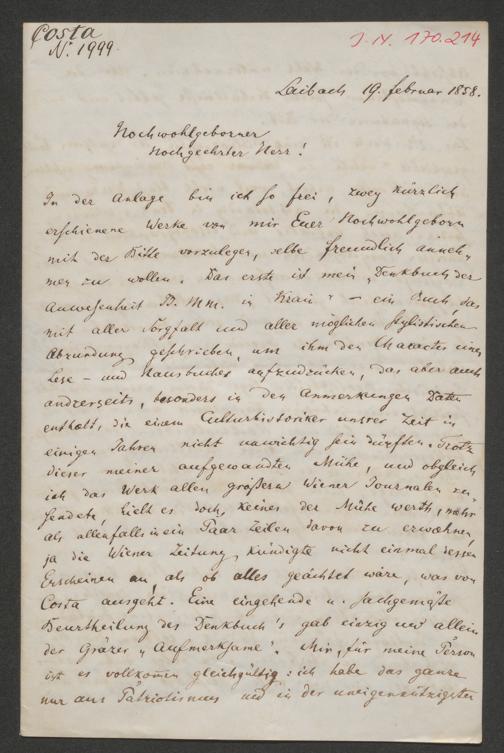 Costa
N. 1999.
J. N. 170.214
Laibach 19. februar 1858.
Hochwohlgeborner
Hochgeehrter Herr!
In der Anlage bin ich so frei, zwey kürzlich
erschienene Werke von mir Euer Hochwohlgeborn
mit der Bitte vorzulegen, selbe freundlich anneh-
men zu wollen. Das erste ist mein „Denkbuch der
Anwesenheit II. MM. in Krain" – ein Buch, das
mit aller Sorgfalt und aller möglichen stylistischen
Abrundung geschrieben, um ihm den Character eines
Lese- und Hausbuches aufzudrücken, das aber auch
andrerseits, besonders in den Anmerkungen Daten
enthält, die einem Culturhistoriker unsrer Zeit in
einigen Jahren nicht unwichtig sein dürften. Trotz
dieser meiner aufgewandten Mühe, und obgleich
ich das Werk allen größern Wiener Journalen zu-
sendete, hielt es doch keines der Mühe werth, mehr
als allenfalls in ein Paar Zeilen davon zu erwähnen,
ja die Wiener Zeitung kündigte nicht einmal dessen
Erscheinen an, als ob alles geächtet wäre, was von
Costa ausgeht. Eine eingehende u. fachgemäße
Beurtheilung des Denkbuch's gab einzig und allein
der Grazer „Aufmerksame". Mir, für meine Person
ist es vollkommen gleichgültig: ich habe das ganze
nur aus Patriotismus und in der uneigennützigsten